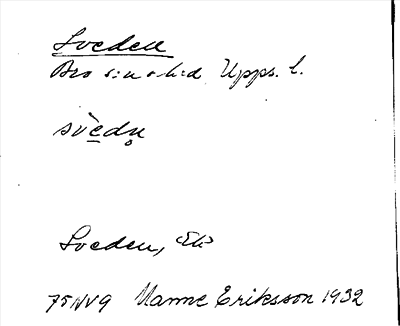 Sveden
Bro s:n o h:d Upps. l.
svèdn̥
Sveden, Ek
75NV9 Manne Eriksson 1932